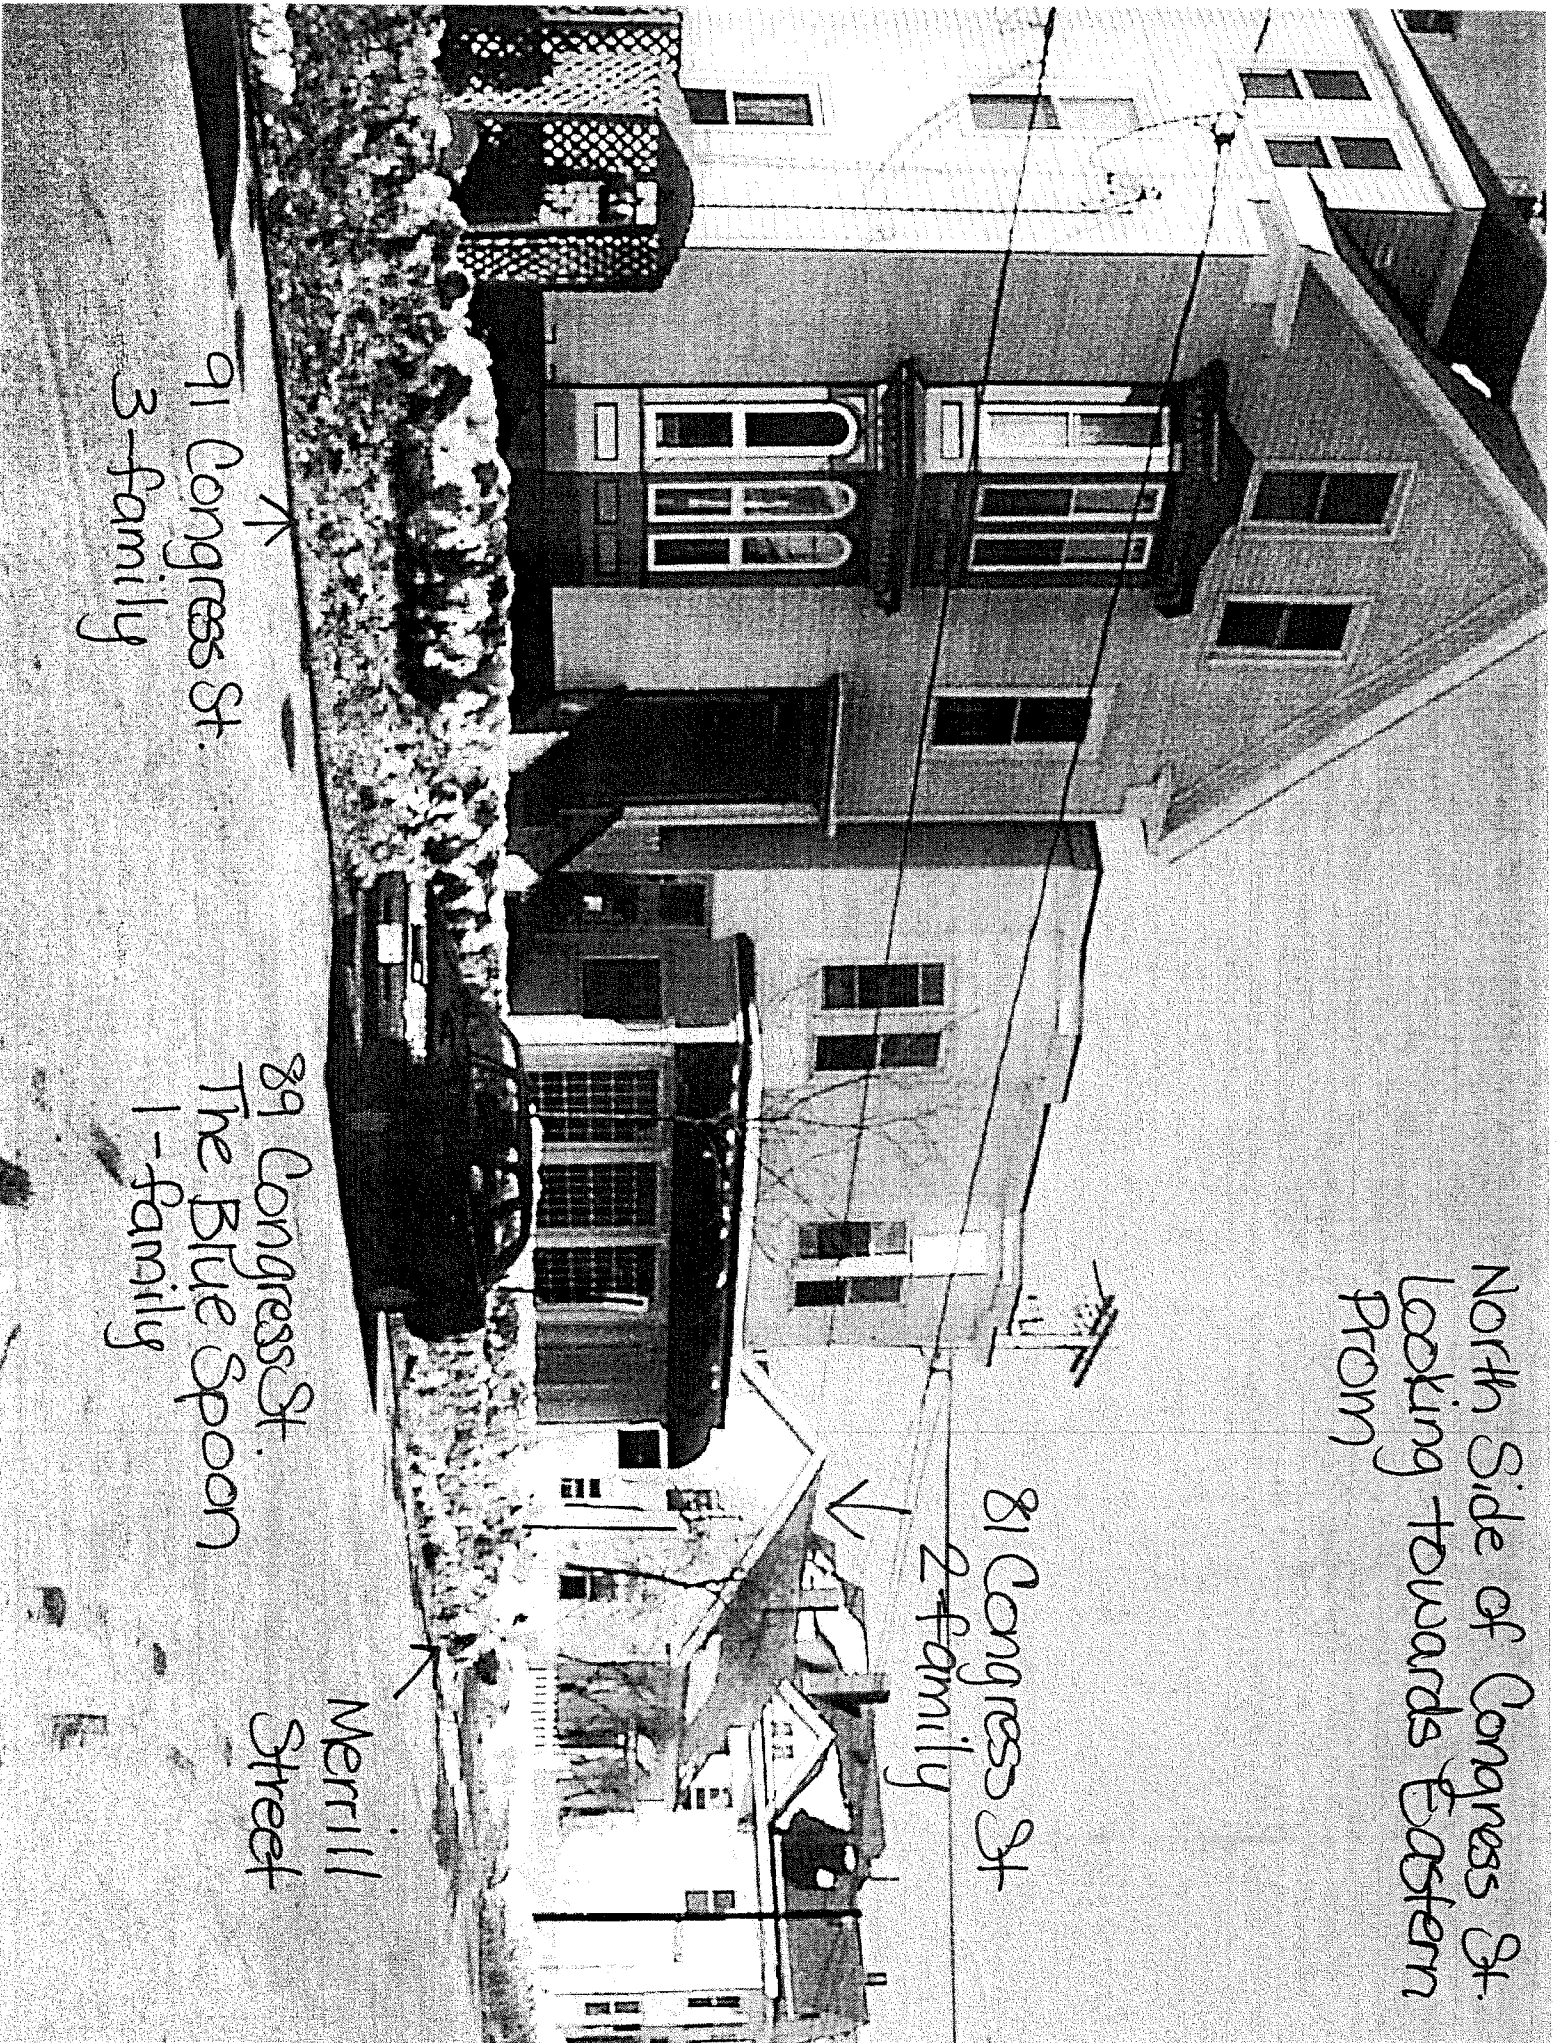 North Side of Congress St.
Looking towards Eastern
Prom
81 Congress St
2-family
91 Congress St.
3-family
89 Congress St.
The Blue Spoon
1-family
Merrill
Street